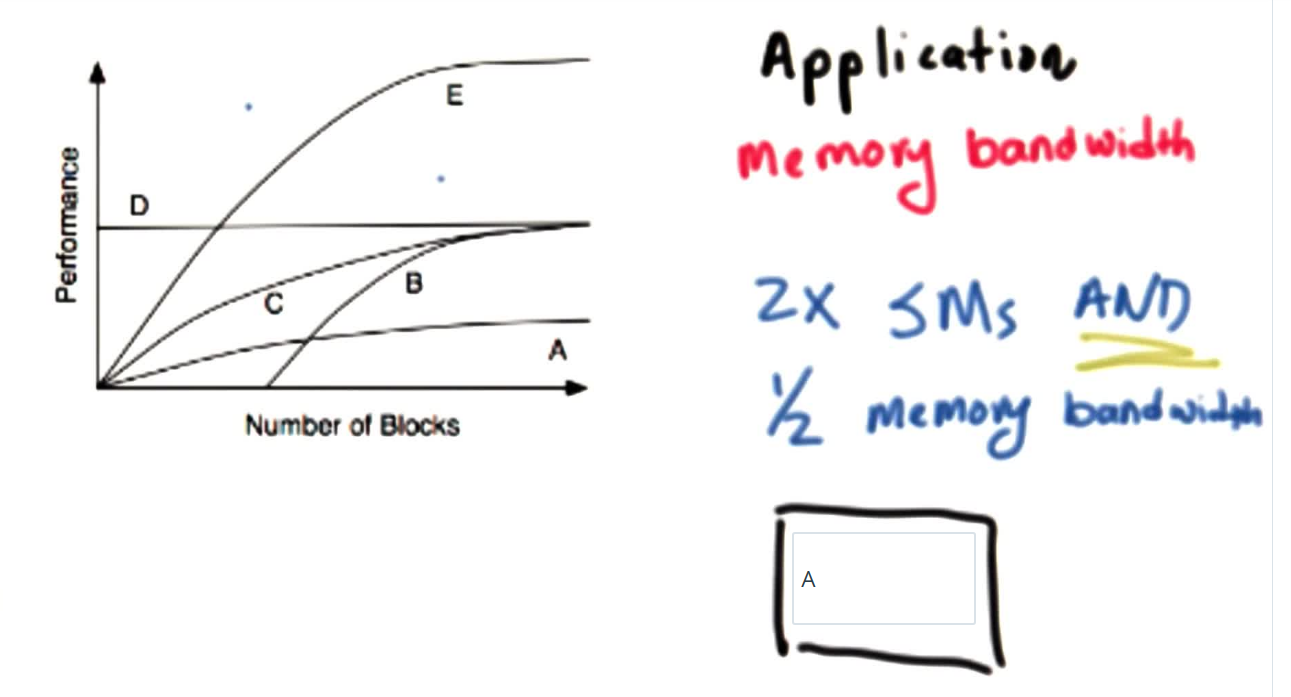 E
D
Performance
C
B
A
Number of Blocks
Application
memory bandwidth
2x SMs AND
1/2 memory bandwidth
A